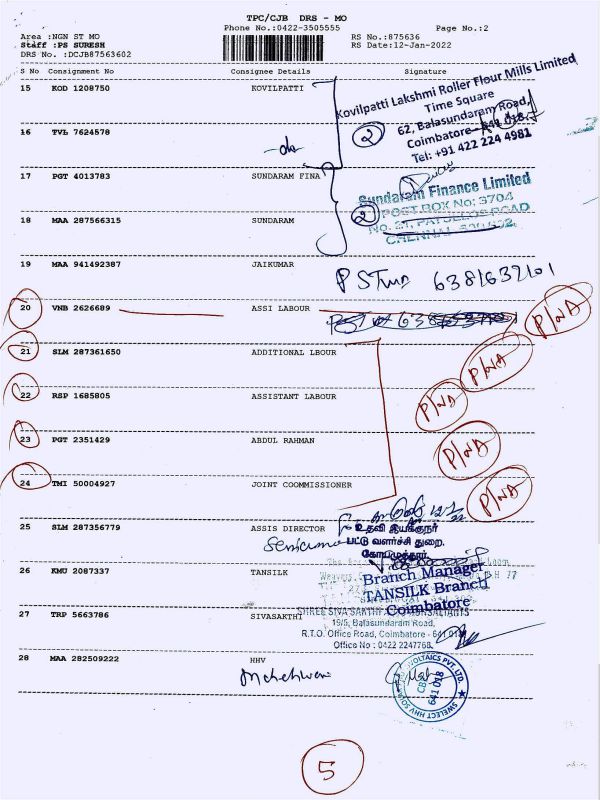 TPC/CJB DRS - MO
Phone No.:0422-3505555 Page No.:2
Area :NGN ST MO RS No.:875636
Staff :PS SURESH RS Date:12-Jan-2022
DRS No. :DCJB87563602
S No Consignment No Consignee Details Signature
15 KOD 1208750 KOVILPATTI
Kovilpatti Lakshmi Roller Flour Mills Limited
Time Square
62, Balasundaram Road,
Coimbatore - 641 018.
Tel: +91 422 224 4981
2
16 TVL 7624578
-do
17 PGT 4013783 SUNDARAM FINA
Sundaram Finance Limited
POST BOX No: 3704
No. 21, PATULLOS ROAD
CHENNAI
2
18 MAA 287566315 SUNDARAM
19 MAA 941492387 JAIKUMAR
6381632101
20 VNB 2626689 ASSI LABOUR
P/NA
21 SLM 287361650 ADDITIONAL LBOUR
P/NA
22 RSP 1685805 ASSISTANT LABOUR
P/NA
23 PGT 2351429 ABDUL RAHMAN
P/NA
24 TMI 50004927 JOINT COOMMISSIONER
P/NA
25 SLM 287356779 ASSIS DIRECTOR
உதவி இயக்குநர்
பட்டு வளர்ச்சி துறை,
கோயமுத்தூர்.
26 KMU 2087337 TANSILK
Branch Manager
TANSILK Branch
Coimbatore
27 TRP 5663786 SIVASAKTHI
SHREE SIVA SAKTHI
19/5, Balasundaram Road,
R.T.O. Office Road, Coimbatore - 641 018
Office No : 0422 2247768
28 MAA 282509222 HHV
SWELECT HHV SOLAR PHOTOVOLTAICS PVT. LTD.
CBE
641 018
5